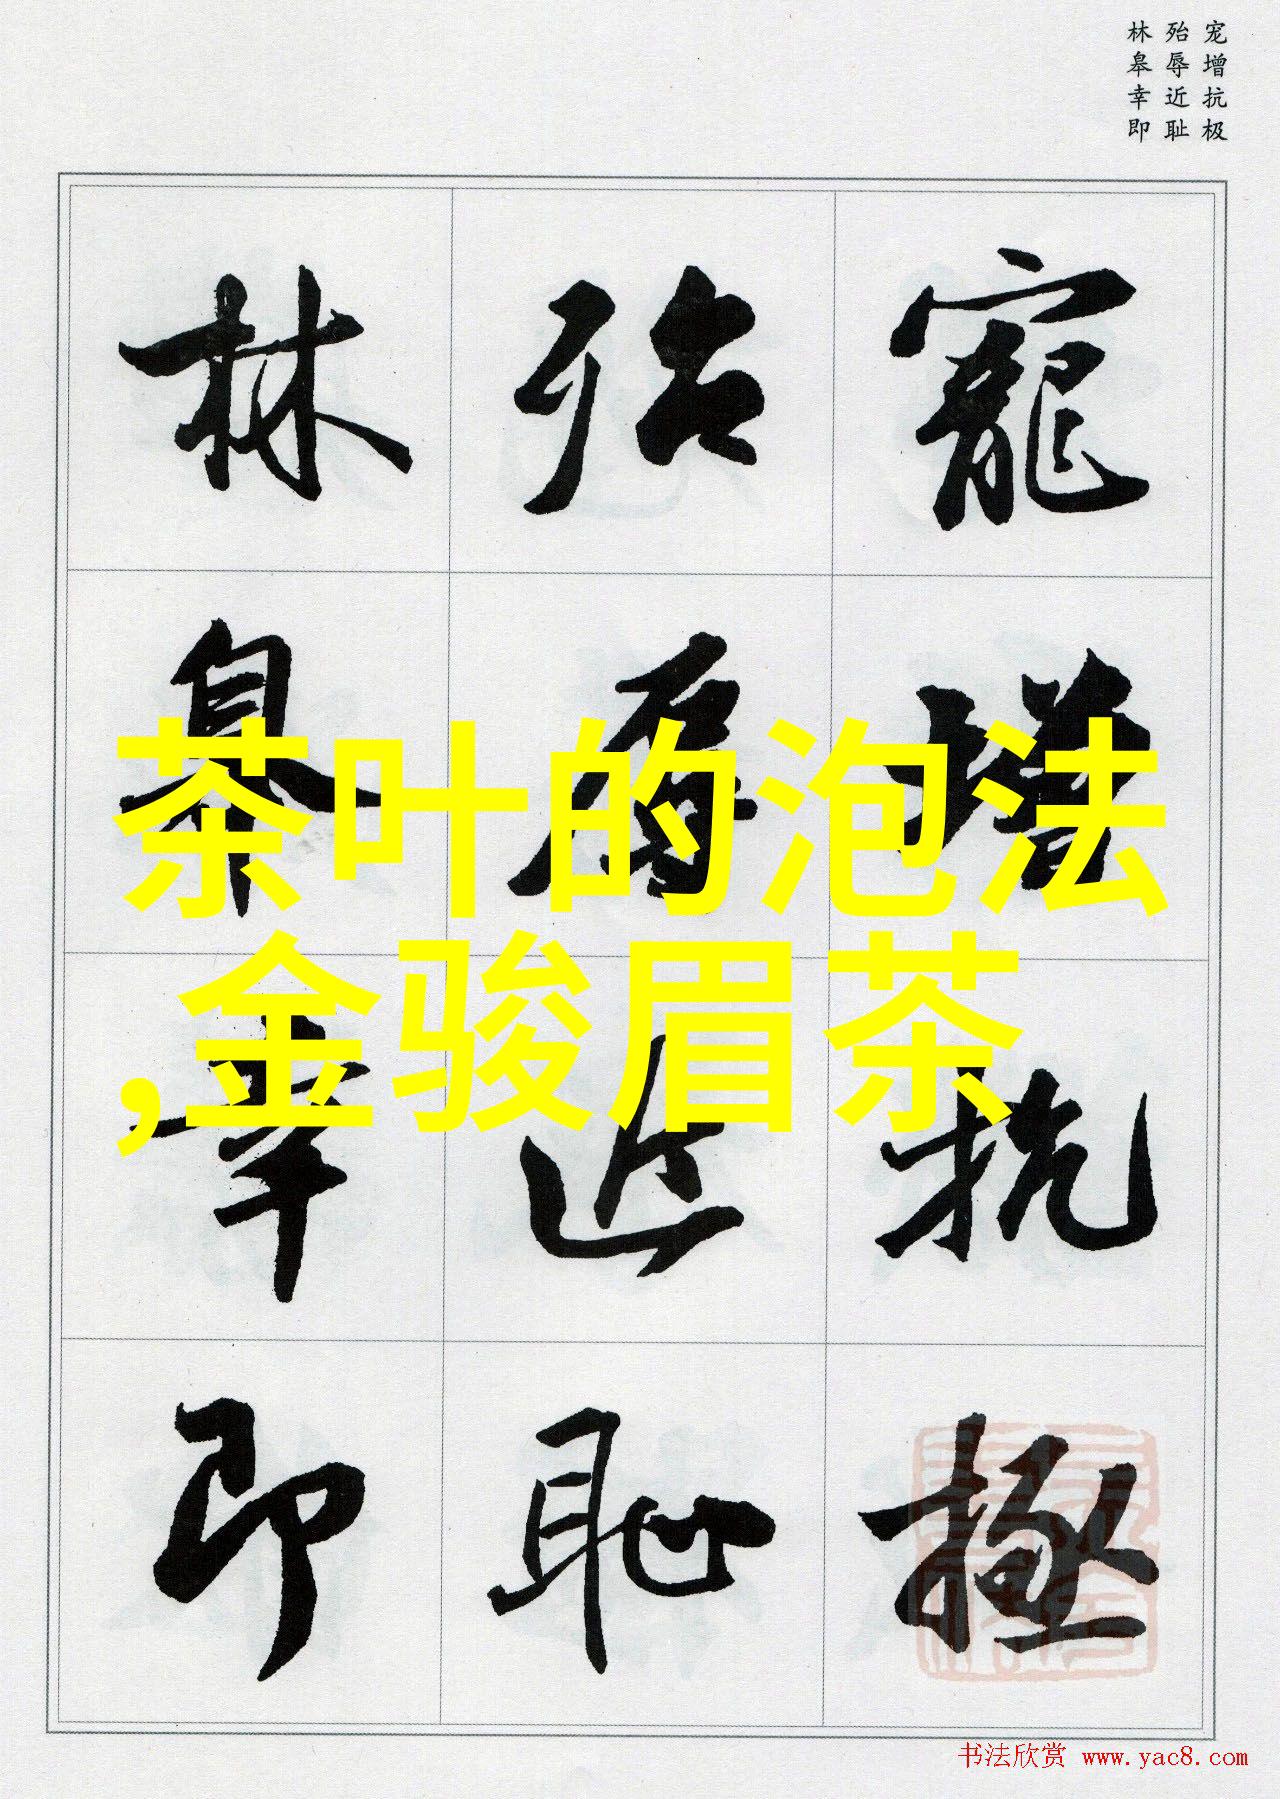 宠增抗极
殆辱近耻
林皋幸即
寵增抗極
殆辱近恥
林皋幸即
茶叶的泡法
,金骏眉茶
书法欣赏 www.yac8.com